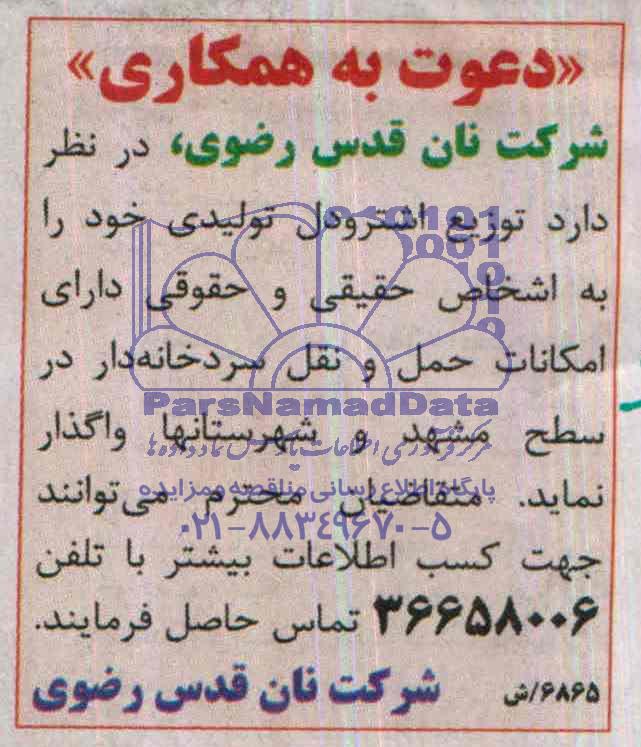 «دعوت به همکاری»
شرکت نان قدس رضوی، در نظر
دارد توزیع اشترودل تولیدی خود را
به اشخاص حقیقی و حقوقی دارای
امکانات حمل و نقل سردخانه‌دار در
ParsNamadData
سطح مشهد و شهرستانها واگذار
مرکز فرآوری اطلاعات پارس نماد داده‌ها
پایگاه اطلاع رسانی مناقصه و مزایده
نماید. متقاضیان محترم می‌توانند
۰۲۱-۸۸۳۴۹۶۷۰-۵
جهت کسب اطلاعات بیشتر با تلفن
۳۶۶۵۸۰۰۶ تماس حاصل فرمایند.
۶۸۶۵/ش شرکت نان قدس رضوی